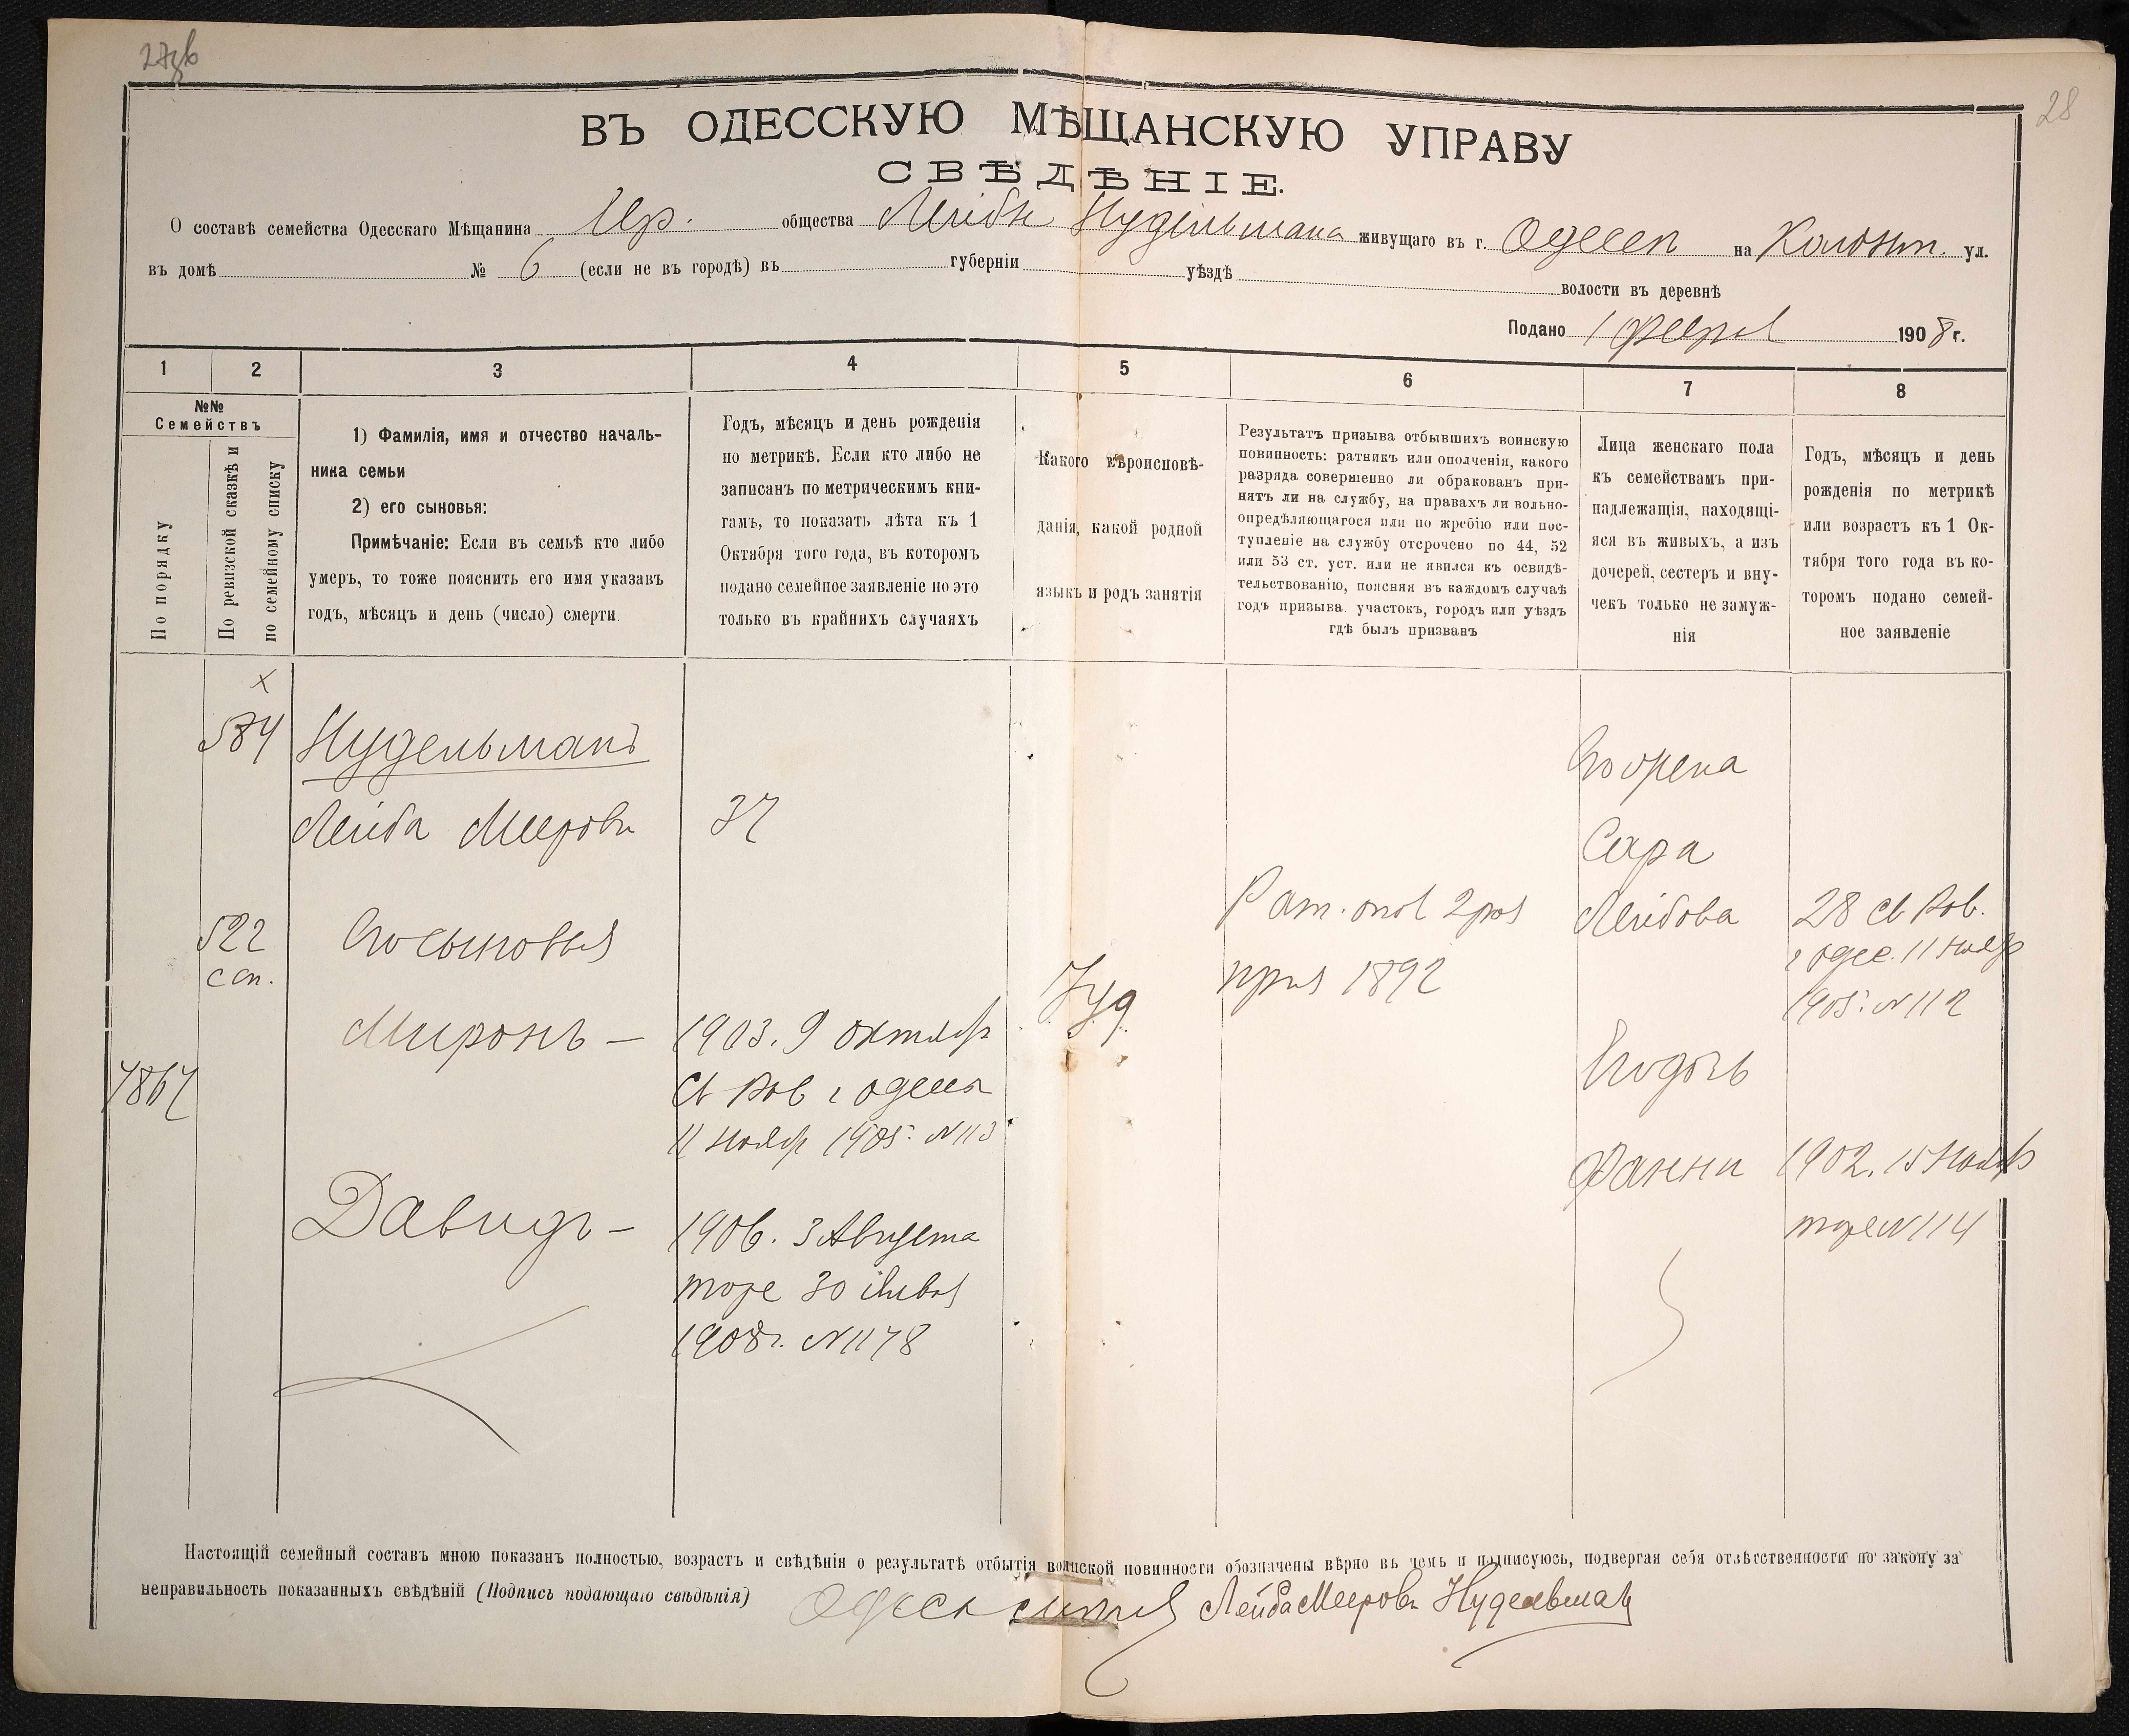 28
ВЪ ОДЕССКУЮ МѢЩАНСКУЮ УПРАВУ
СВѢДѢНІЕ.
О составѣ семейства Одесскаго Мѣщанина Ир. общества Лейбы Нудельмана живущаго въ г. Одессѣ на Колонт. ул.
въ домѣ № 6 (если не въ городѣ) въ губерніи уѣздѣ волости въ деревнѣ
Подано 1 Феврал 1908 г.
1 2 3 4 5 6 7 8
№№
Семействъ
По порядку
По ревизской сказкѣ и
по семейному списку
1) Фамилія, имя и отчество началь-
ника семьи
2) его сыновья:
Примѣчаніе: Если въ семьѣ кто либо
умеръ, то тоже пояснить его имя указавъ
годъ, мѣсяцъ и день (число) смерти.
Годъ, мѣсяцъ и день рожденія
по метрикѣ. Если кто либо не
записанъ по метрическимъ кни-
гамъ, то показать лѣта къ 1
Октября того года, въ которомъ
подано семейное заявленіе но это
только въ крайнихъ случаяхъ
Какого вѣроисповѣ-
данія, какой родной
языкъ и родъ занятія
Результатъ призыва отбывшихъ воинскую
повинность: ратникъ или ополченія, какого
разряда совершенно ли обракованъ при-
нятъ ли на службу, на правахъ ли вольно-
опредѣляющагося или по жребію или пос-
тупленіе на службу отсрочено по 44, 52
или 53 ст. уст. или не явился къ освидѣ-
тельствованію, поясняя въ каждомъ случаѣ
годъ призыва. участокъ, городъ или уѣздъ
гдѣ былъ призванъ
Лица женскаго пола
къ семействамъ при-
надлежащія, находящі-
яся въ живыхъ, а изъ
дочерей, сестеръ и вну-
чекъ только не замуж-
нія
Годъ, мѣсяцъ и день
рожденія по метрикѣ
или возрастъ къ 1 Ок-
тября того года въ ко-
торомъ подано семей-
ное заявленіе
х
584 Нудельманъ
Лейба Меерова 37
522
сп.
Его сыновья
Миронъ — 1903. 9 октябр
Св Рав г Одессы
11 Ноябр 1905. N 113
Давидъ — 1906. 3 Августа
тоже 30 Января
1908г. N 1178
Іуд.
Рат. опол 2 раз
приз 1892
Его жена
Сара
Лейбова 28 Св Рав.
г Одес. 11 Ноябр
1905. N 112
Его дочь
Фанни 1902. 15 Ноябр
тоже N 114
Настоящій семейный составъ мною показанъ полностью, возрастъ и свѣдѣнія о результатѣ отбытія воинской повинности обозначены вѣрно въ чемъ и подписуюсь, подвергая себя отвѣтственности по закону за
неправильность показанныхъ свѣдѣній (Подпись подающаго свѣдѣнія) Лейба Меерова Нудельман